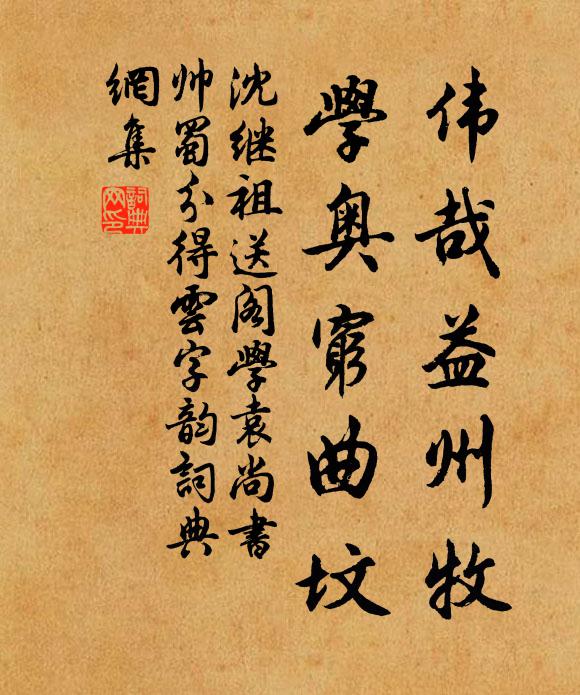 伟哉益州牧
學奥窮曲坟
沈继祖送阁學袁尚書
帅蜀分得雲字韵詞典
網集
詞典網印